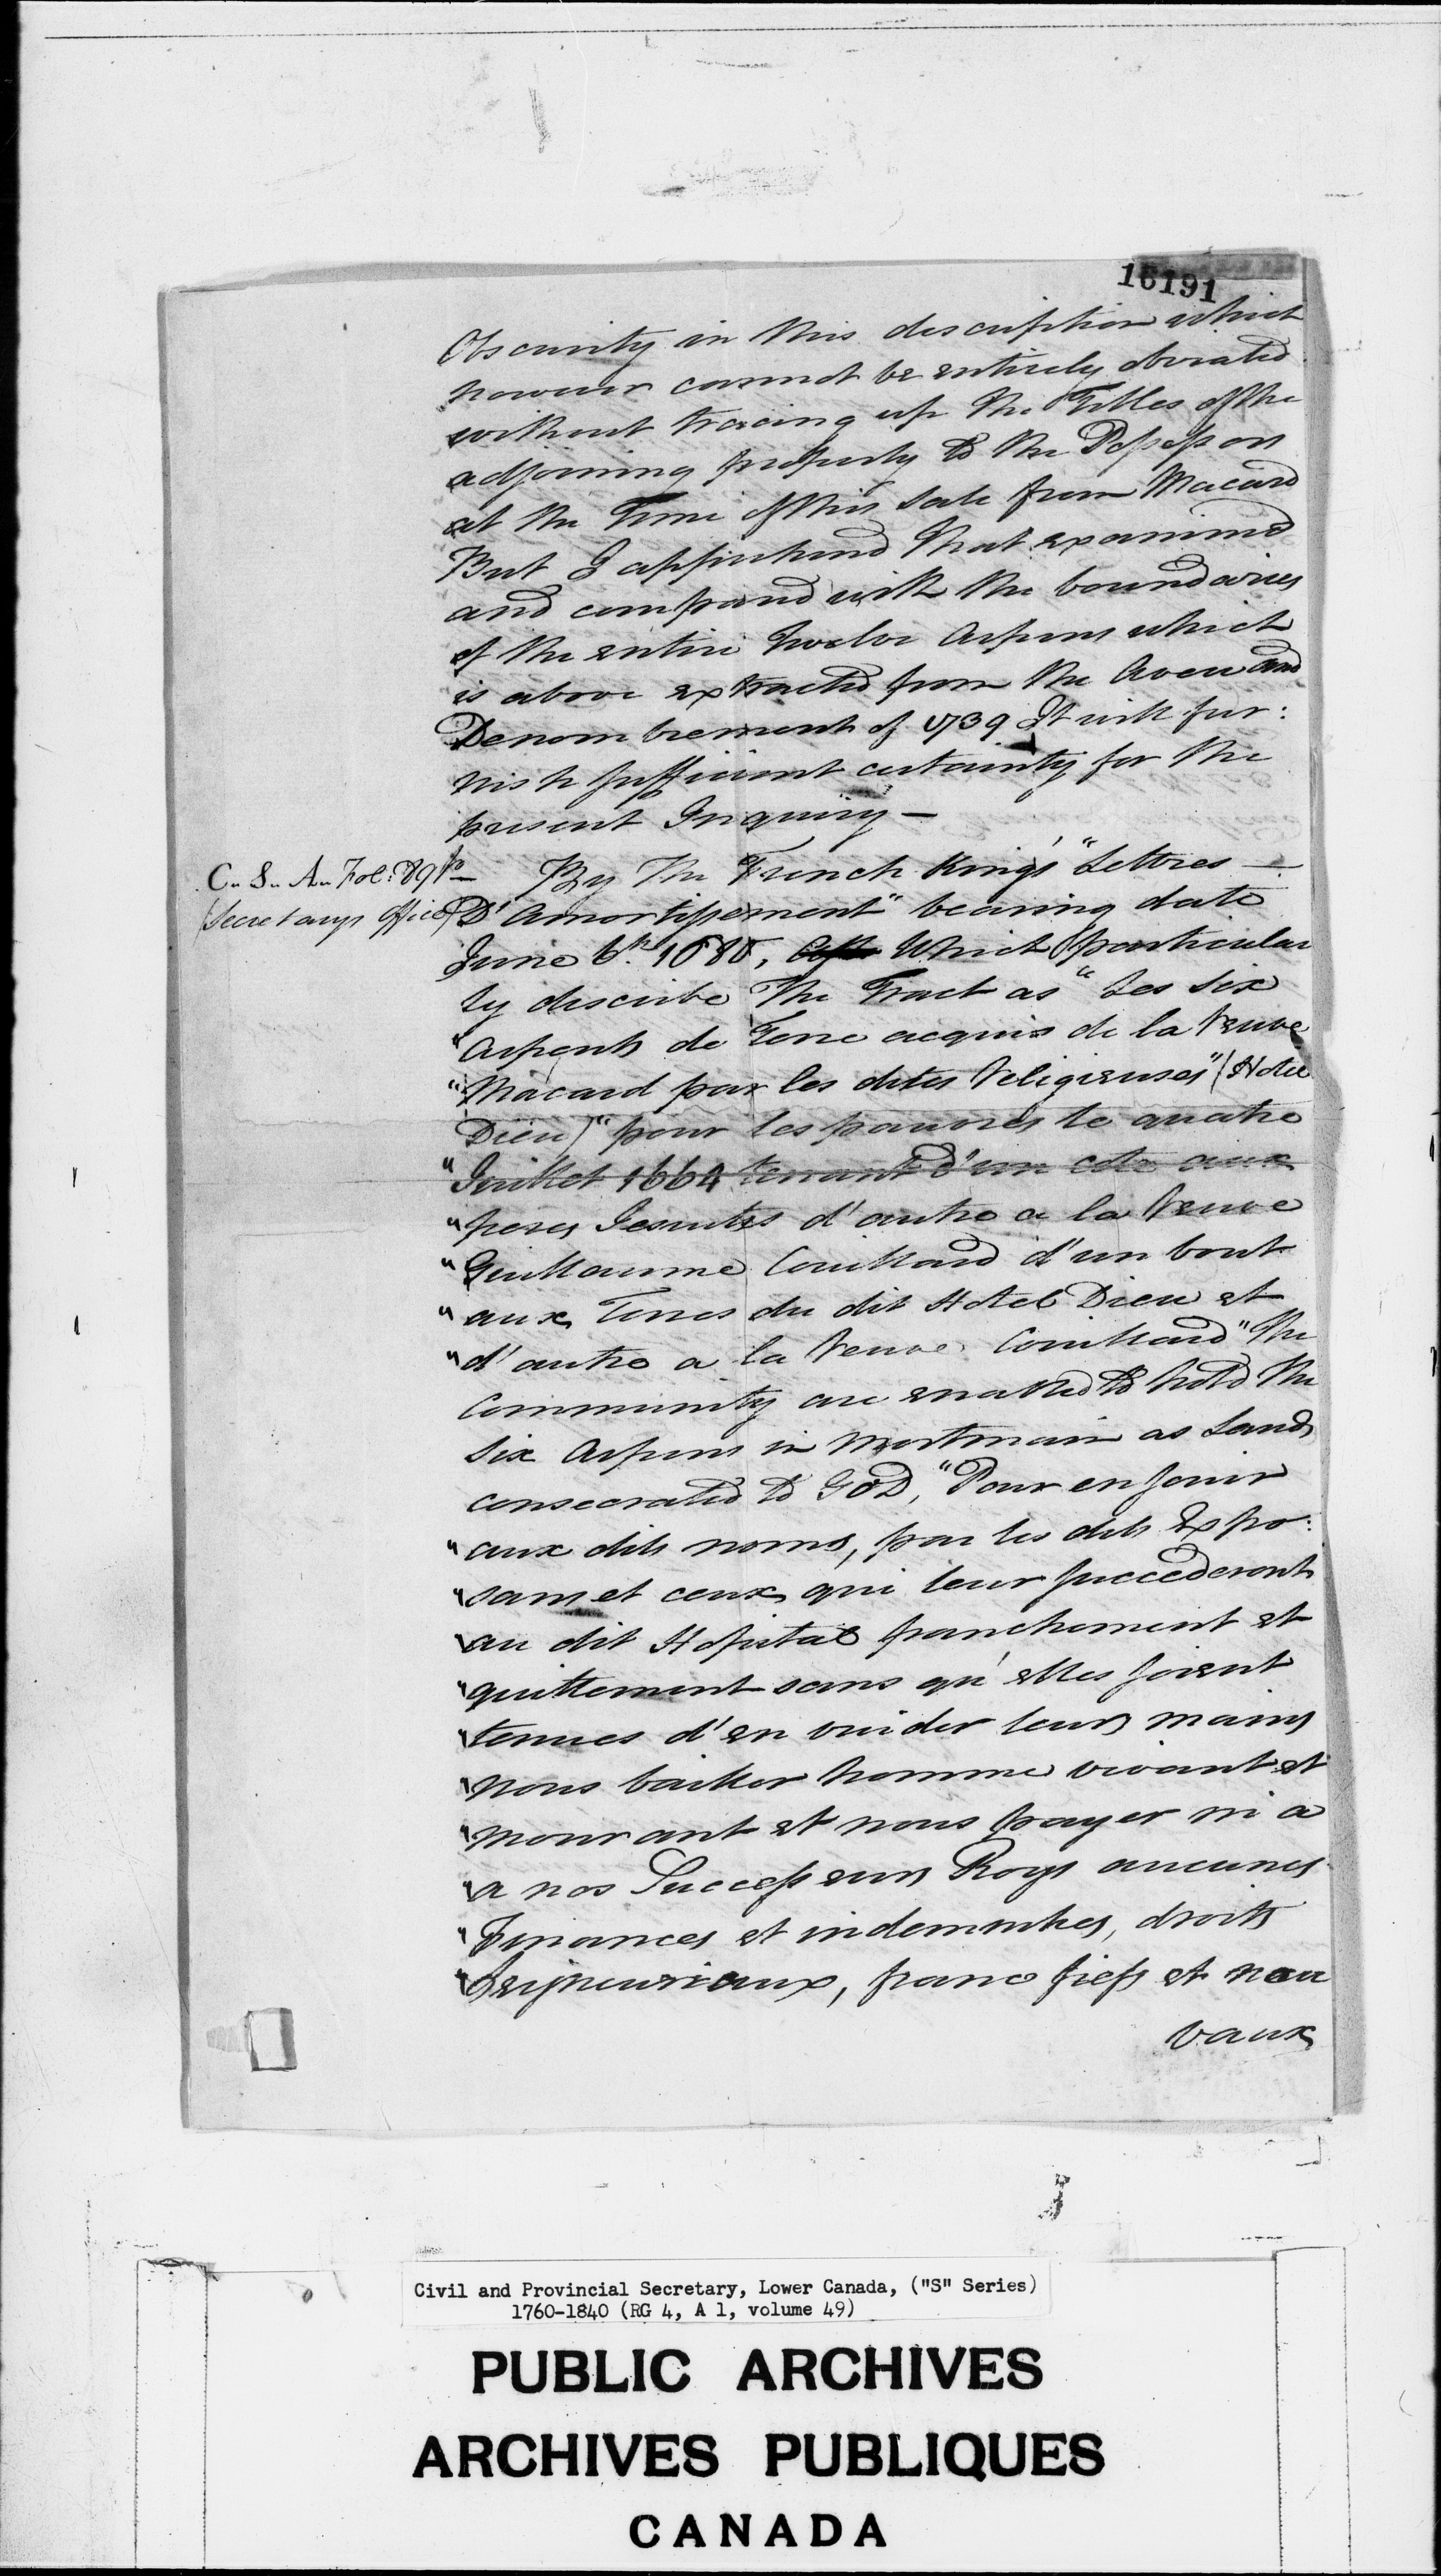 16191
Obscurity in this description which
however cannot be entirely obviated
without tracing up the Titles of the
adjoining property to the Possessors
at the Time of this Sale from Macard
But I apprehend that examined
and compared with the boundaries
of the entire Twelve Arpens which
is above extracted from the Aveu and
Denombrement of 1739 It will fur:
nish sufficient certainty for the
present Inquiry —
C. S. A. Fol: 89 &c — By The French King's "Lettres —
(Secretarys Office) D'Amortissement" bearing date
June 6th 1680, Which particular
ly describe The Tract as "Les Six
"Arpents de Terre acquis de la Veuve
"Macard par les dites Religieuses" (Hotel
Dieu) "pour les pauvres le quatre
"Juillet 1664 tenant d'un coté aux
"peres Jesuites d'autre a la Veuve
"Guillaume Couillard d'un bout
"aux Terres du dit Hotel Dieu et
"d'autre a la Veuve Couillard" The
Community are enabled to hold the
Six Arpens in Mortmain as Lands
consecrated to GOD, "Pour en jouir
"aux dits noms, par les dits Expo:
"sans et ceux qui leur succederont
"au dit Hopital franchement et
"quittement sans qu'elles soient
"tenues d'en vuider leurs mains
"nous bailler homme vivant et
"mourant et nous payer ni a
"a nos Successeurs Roys aucunes
"Finances et indemnites, droits
"Seigneuriaux, franc fiefs et nou
vaux
Civil and Provincial Secretary, Lower Canada, ("S" Series)
1760-1840 (RG 4, A 1, volume 49)
PUBLIC ARCHIVES
ARCHIVES PUBLIQUES
CANADA